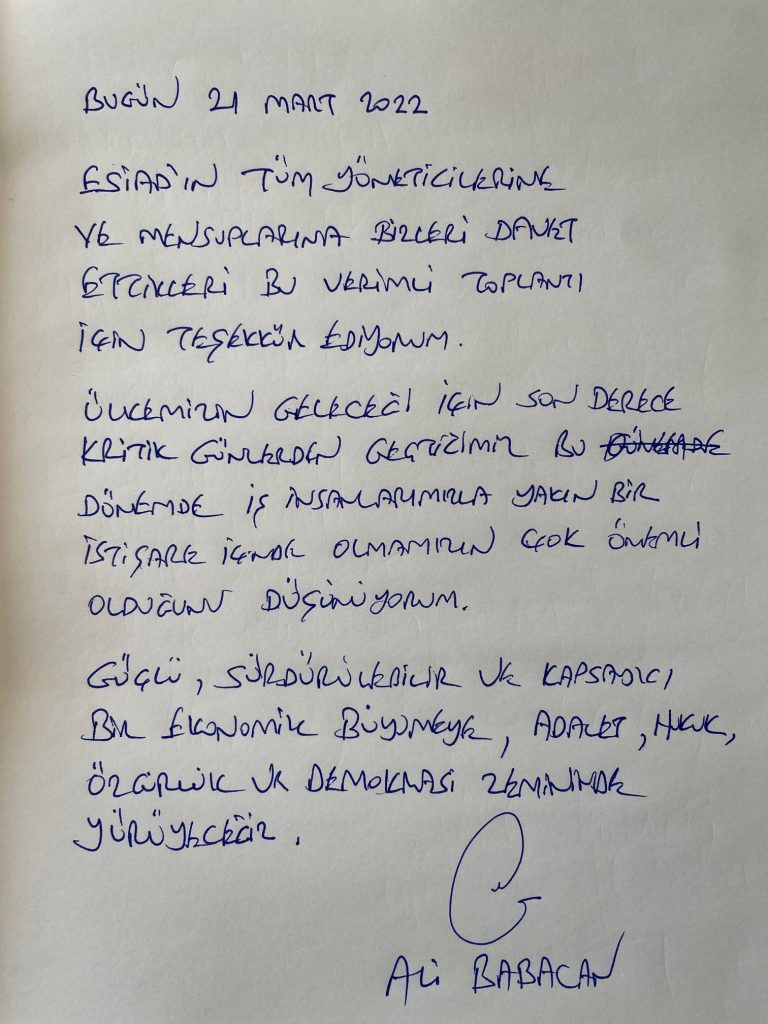 BUGÜN 21 MART 2022
ESİAD'IN TÜM YÖNETİCİLERİNE
VE MENSUPLARINA BİZLERİ DAVET
ETTİKLERİ BU VERİMLİ TOPLANTI
İÇİN TEŞEKKÜR EDİYORUM.
ÜLKEMİZİN GELECEĞİ İÇİN SON DERECE
KRİTİK GÜNLERDEN GEÇTİĞİMİZ BU
DÖNEMDE İŞ İNSANLARIMIZLA YAKIN BİR
İSTİŞARE İÇİNDE OLMAMIZIN ÇOK ÖNEMLİ
OLDUĞUNU DÜŞÜNÜYORUM.
GÜÇLÜ, SÜRDÜRÜLEBİLİR VE KAPSAYICI
BİR EKONOMİK BÜYÜMEYE, ADALET, HUKUK,
ÖZGÜRLÜK VE DEMOKRASİ ZEMİNİNDE
YÜRÜYECEĞİZ.
ALİ BABACAN